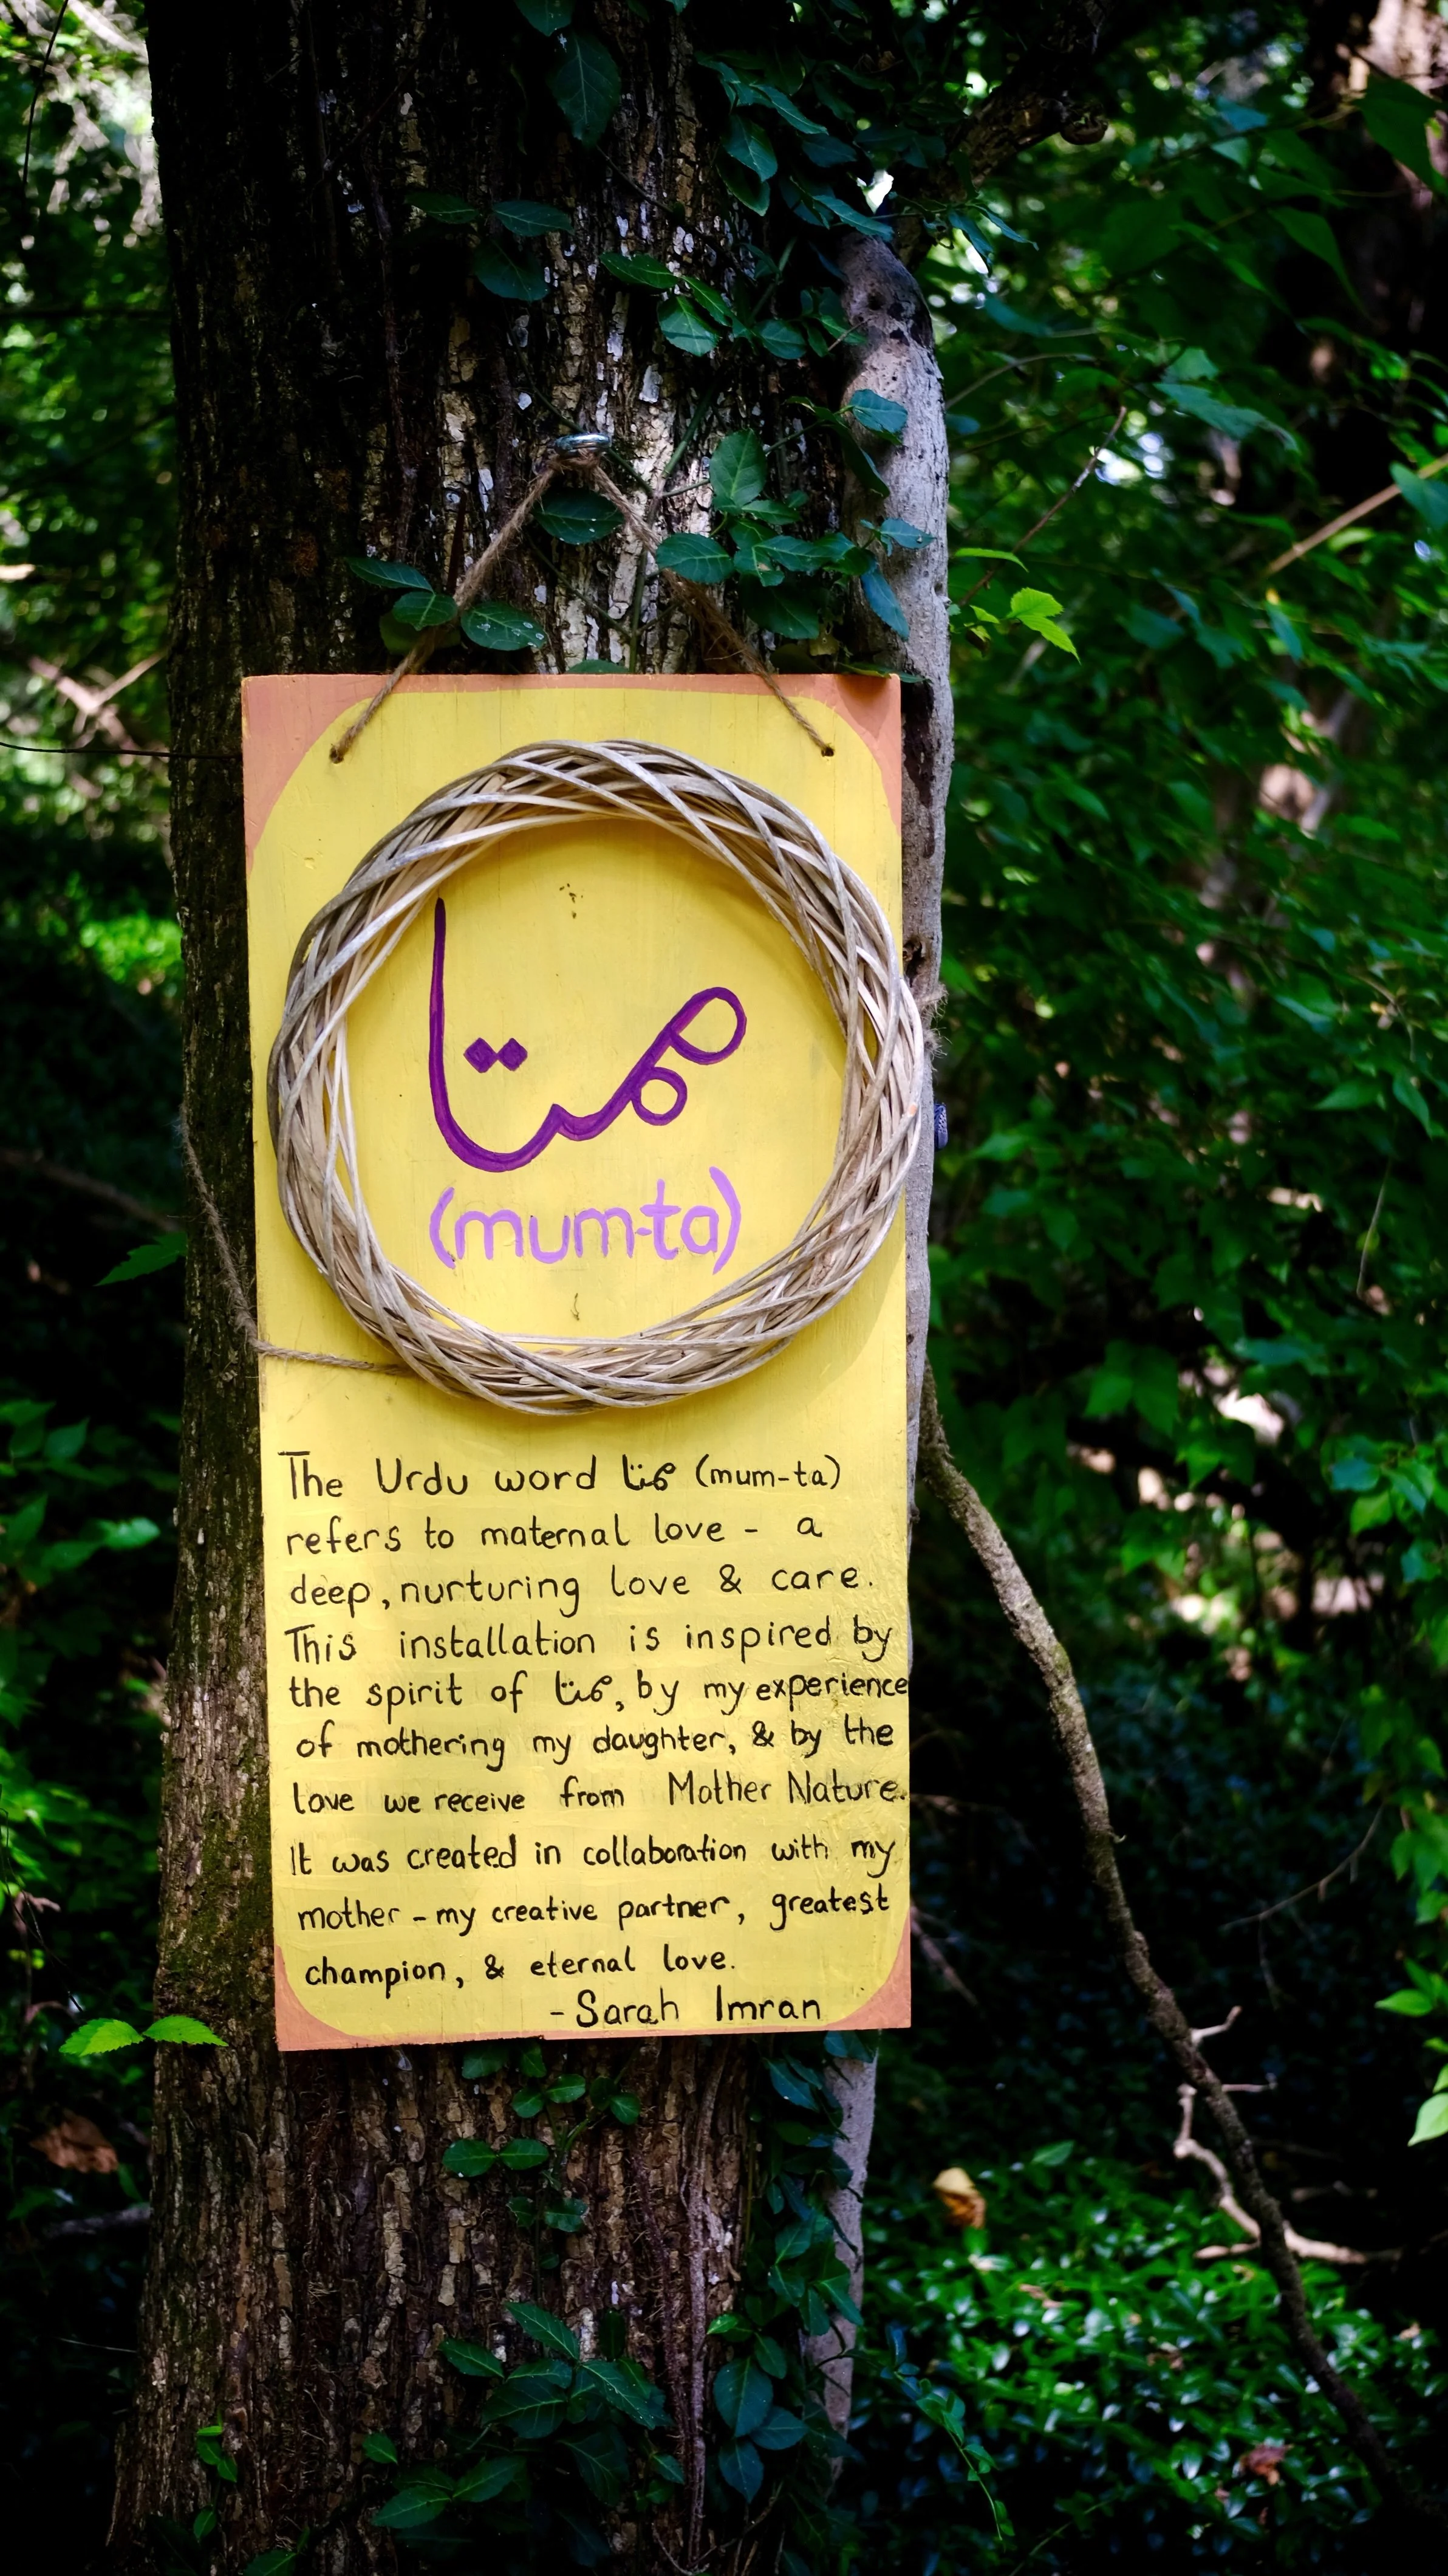 ممتا
(mum-ta)
The Urdu word ممتا (mum-ta)
refers to maternal love - a
deep, nurturing love & care.
This installation is inspired by
the spirit of ممتا, by my experience
of mothering my daughter, & by the
love we receive from Mother Nature.
It was created in collaboration with my
mother - my creative partner, greatest
champion, & eternal love.
- Sarah Imran